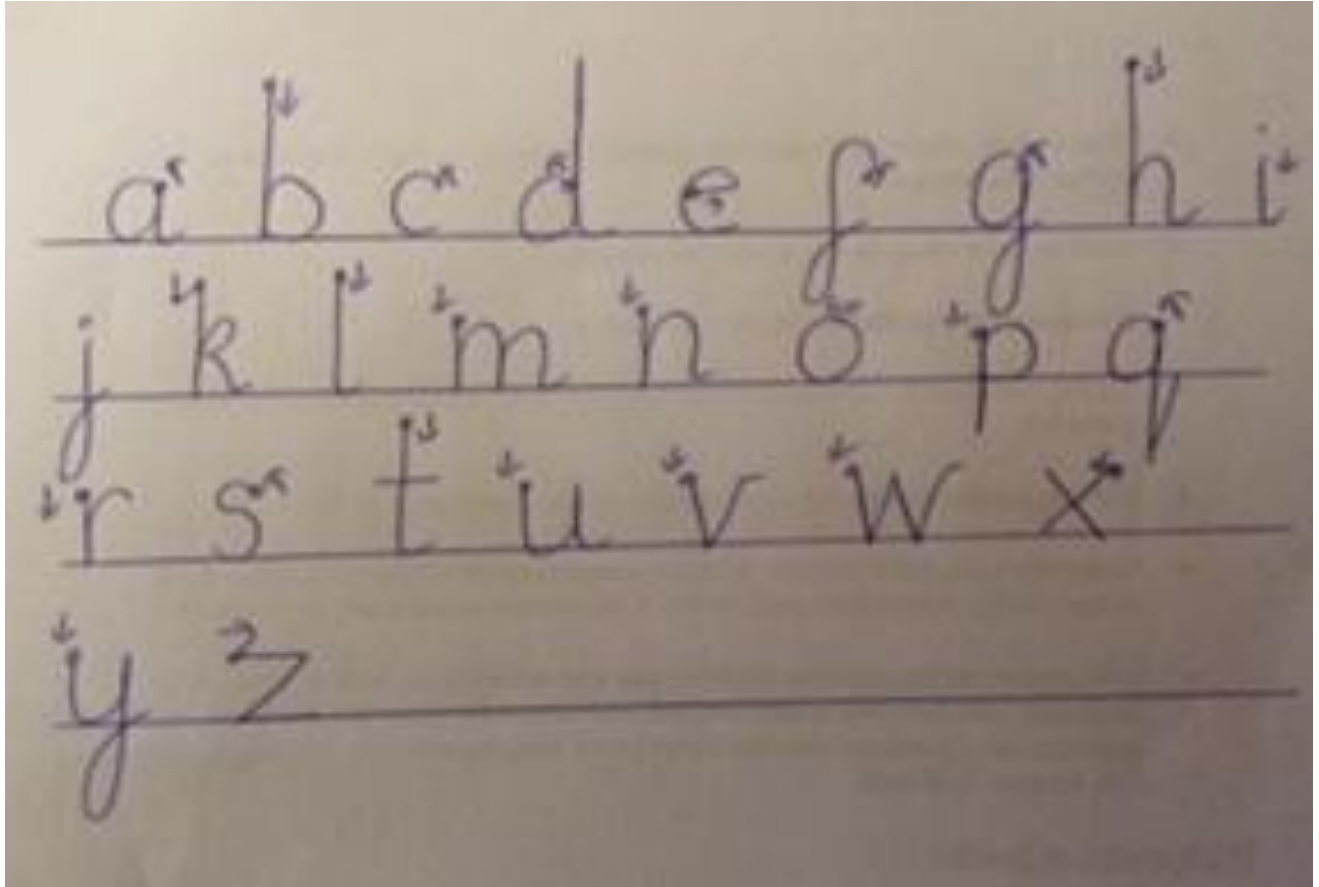 a b c d e f g h i
j k l m n o p q
r s t u v w x
y z